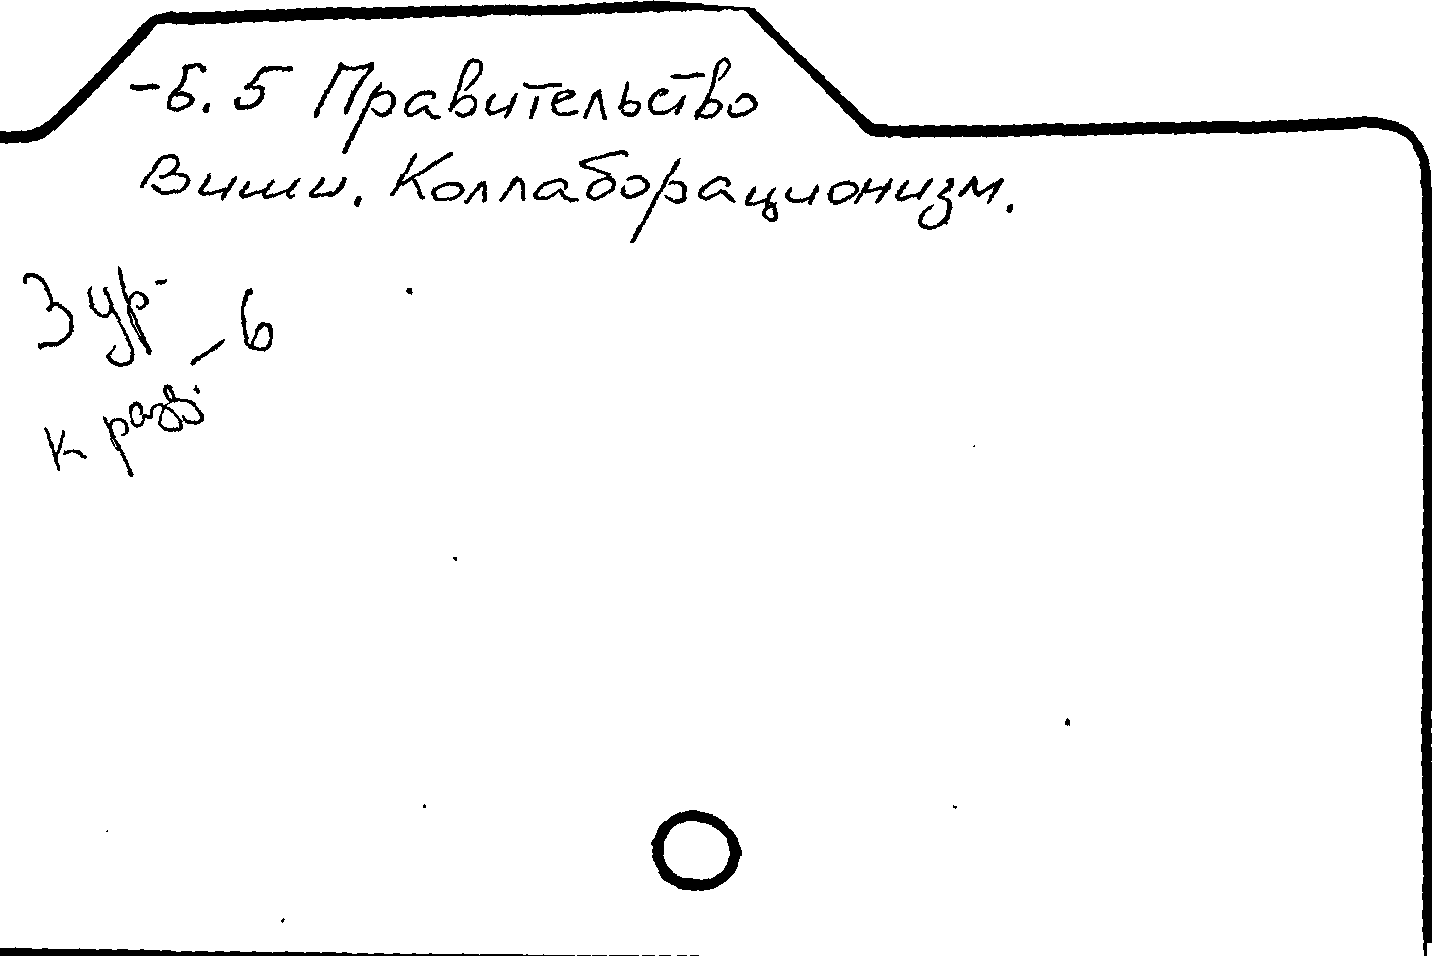 -Б.5 Правительство
Виши. Коллаборационизм.
3 ур-
- 6
к разв.